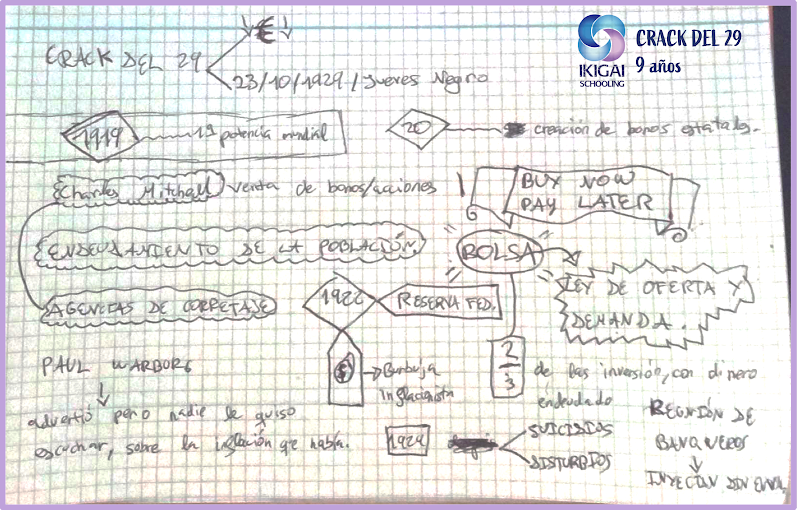 CRACK DEL 29
€
23/10/1929 / Jueves Negro
IKIGAI
SCHOOLING
CRACK DEL 29
9 años
1919
1ª potencia mundial
20
creación de bonos estatales.
Charles Mitchell
venta de bonos/acciones
BUY NOW
PAY LATER
ENDEUDAMIENTO DE LA POBLACIÓN
BOLSA
LEY DE OFERTA Y
DEMANDA.
AGENCIAS DE CORRETAJE
1922
RESERVA FED.
Burbuja
inflacionista
2
3
de las inversión, con dinero
endeudado
PAUL WARBORG
advertió pero nadie le quiso
escuchar, sobre la inflación que había.
1929
SUICIDIOS
DISTURBIOS
REUNIÓN DE
BANQUEROS
INYECTAN DINERO